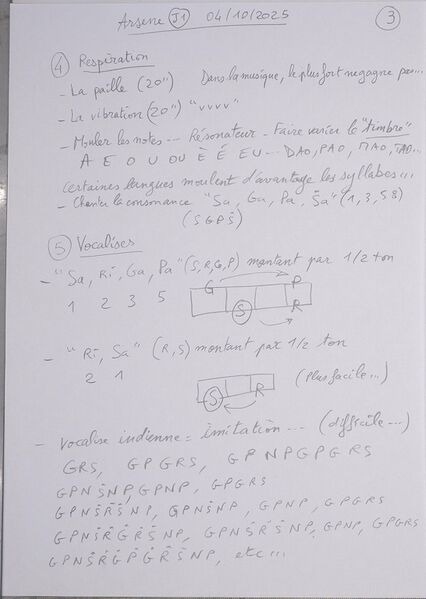 Arsene J1 04/10/2025 3
4 Respiration
- La paille (20'') Dans la musique, le plus fort ne gagne pas...
- La vibration (20'') "vvvv"
- Mouler les notes ... Résonateur - Faire varier le "timbre"
A E O U OU È É EU... DAO, PAO, MAO, TAO...
Certaines langues moulent d'avantage les syllabes...
- Chanter la consonance "Sa, Ga, Pa, Ṡa" (1, 3, 5 8)
(S G P Ṡ)
5 Vocalises
- "Sa, Ri, Ga, Pa" (S, R, G, P) montant par 1/2 ton
1 2 3 5
G P
S R
- "Ri, Sa" (R, S) montant par 1/2 ton
2 1
S R (Plus facile...)
- Vocalise indienne = imitation ... (difficile...)
GRS, GPGRS, GPNPGPGRS
GPNṠNP, GPNP, GPGRS
GPNṠṘṠNP, GPNṠNP, GPNP, GPGRS
GPNṠṘĠṘṠNP, GPNṠṘṠNP, GPNP, GPGRS
GPNṠṘĠṖĠṘṠNP, etc...